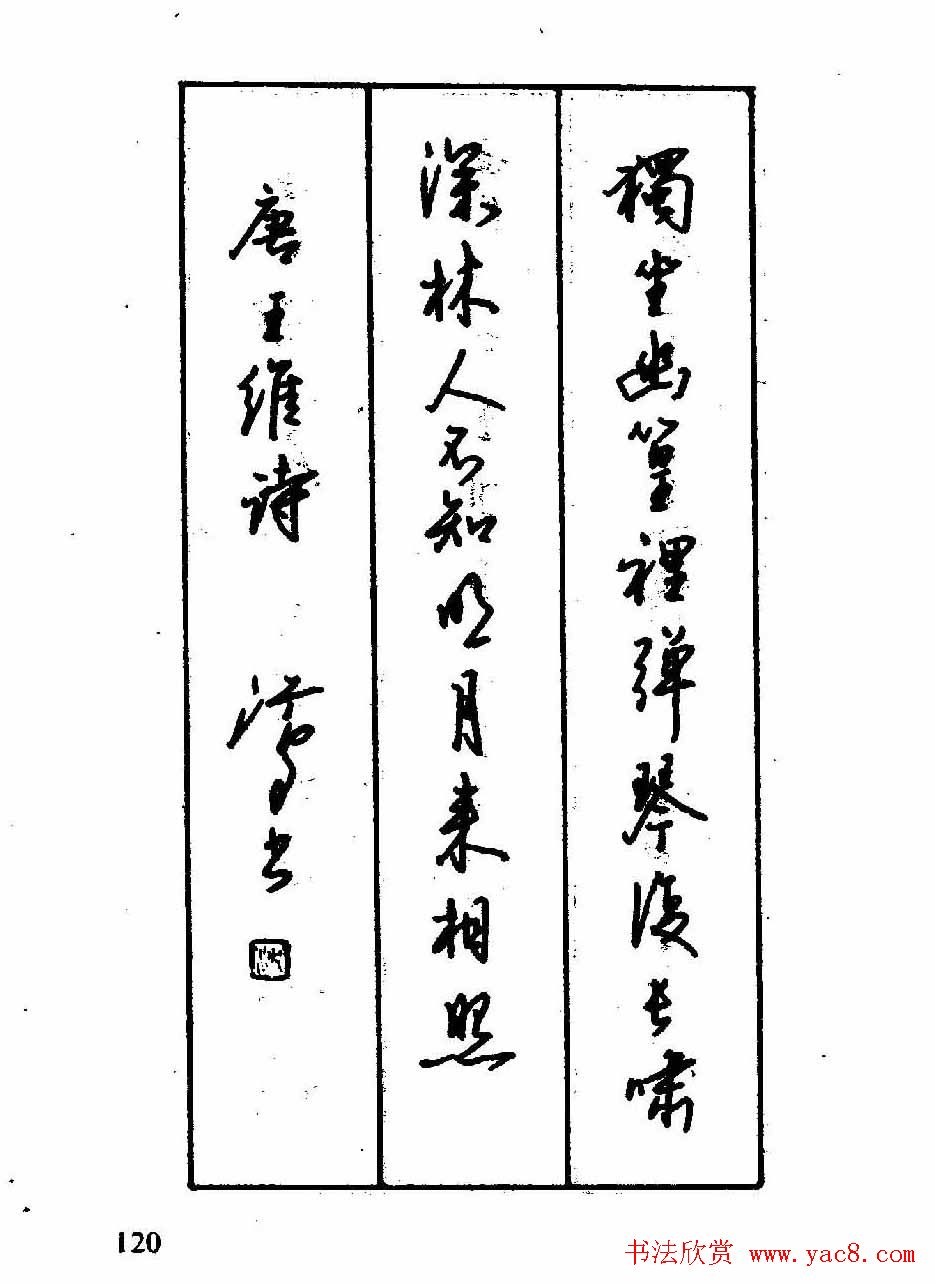 獨坐幽篁裡弹琴復长啸
深林人不知明月来相照
唐王维诗 书
120
书法欣赏 www.yac8.com